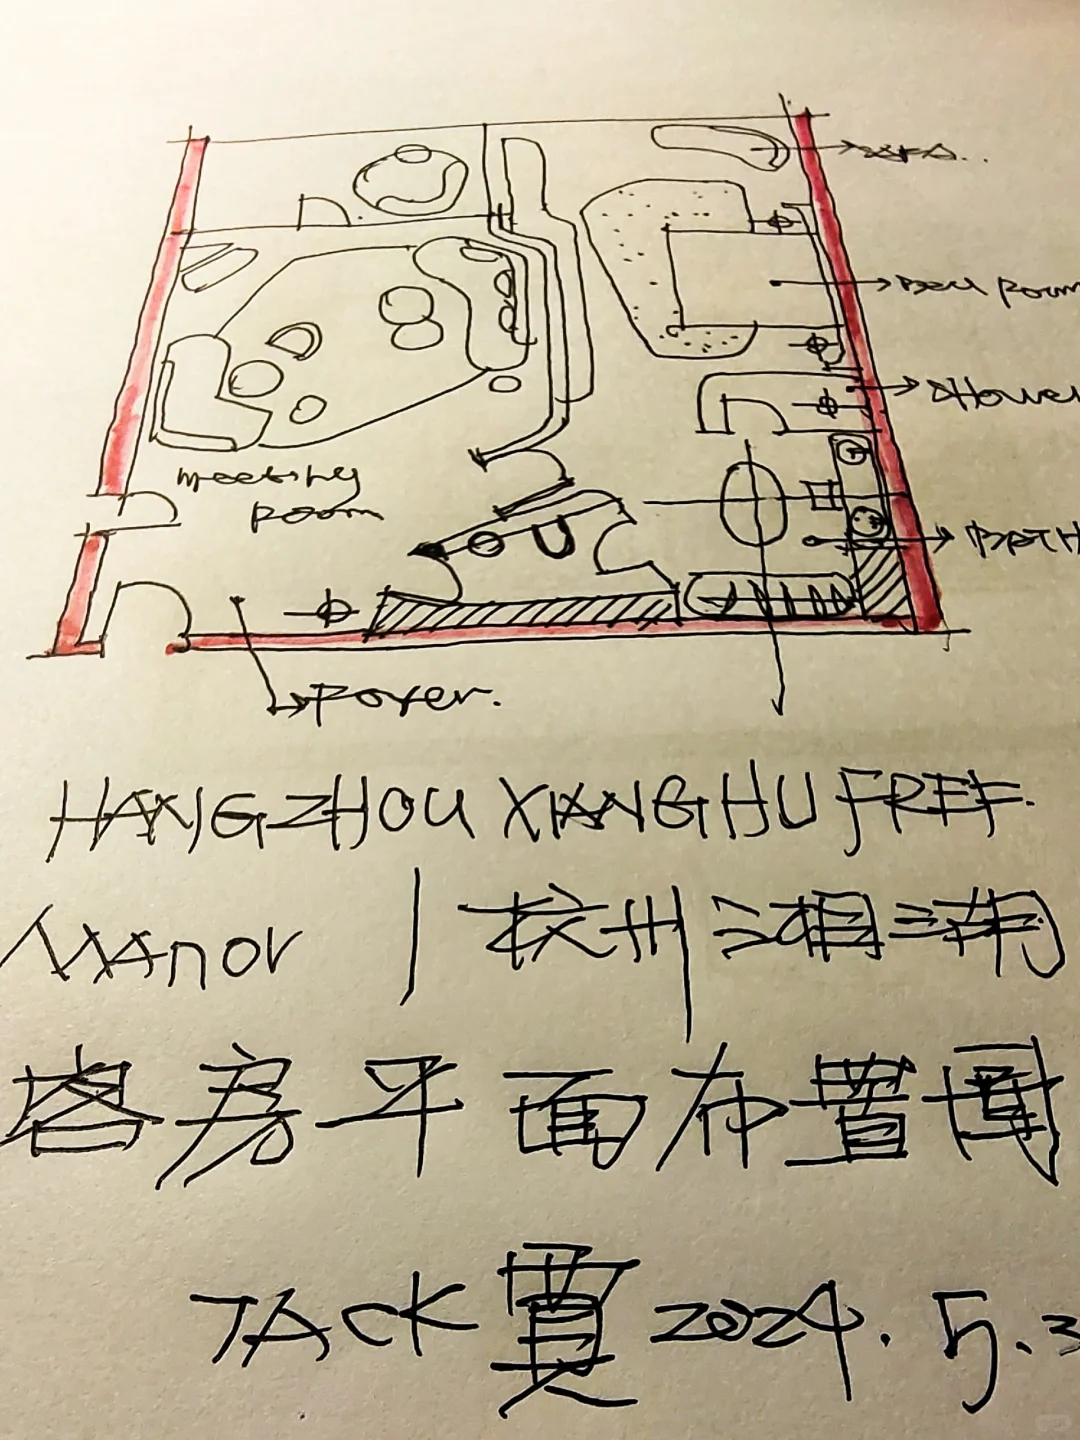 SOFA..
Bed Room
Shower
meeting
Room
BATH
Foyer.
HANGZHOU XIANGHU FREE.
MAnor | 杭州湘湖
客房平面布置圖
JACK賈2024.5.3